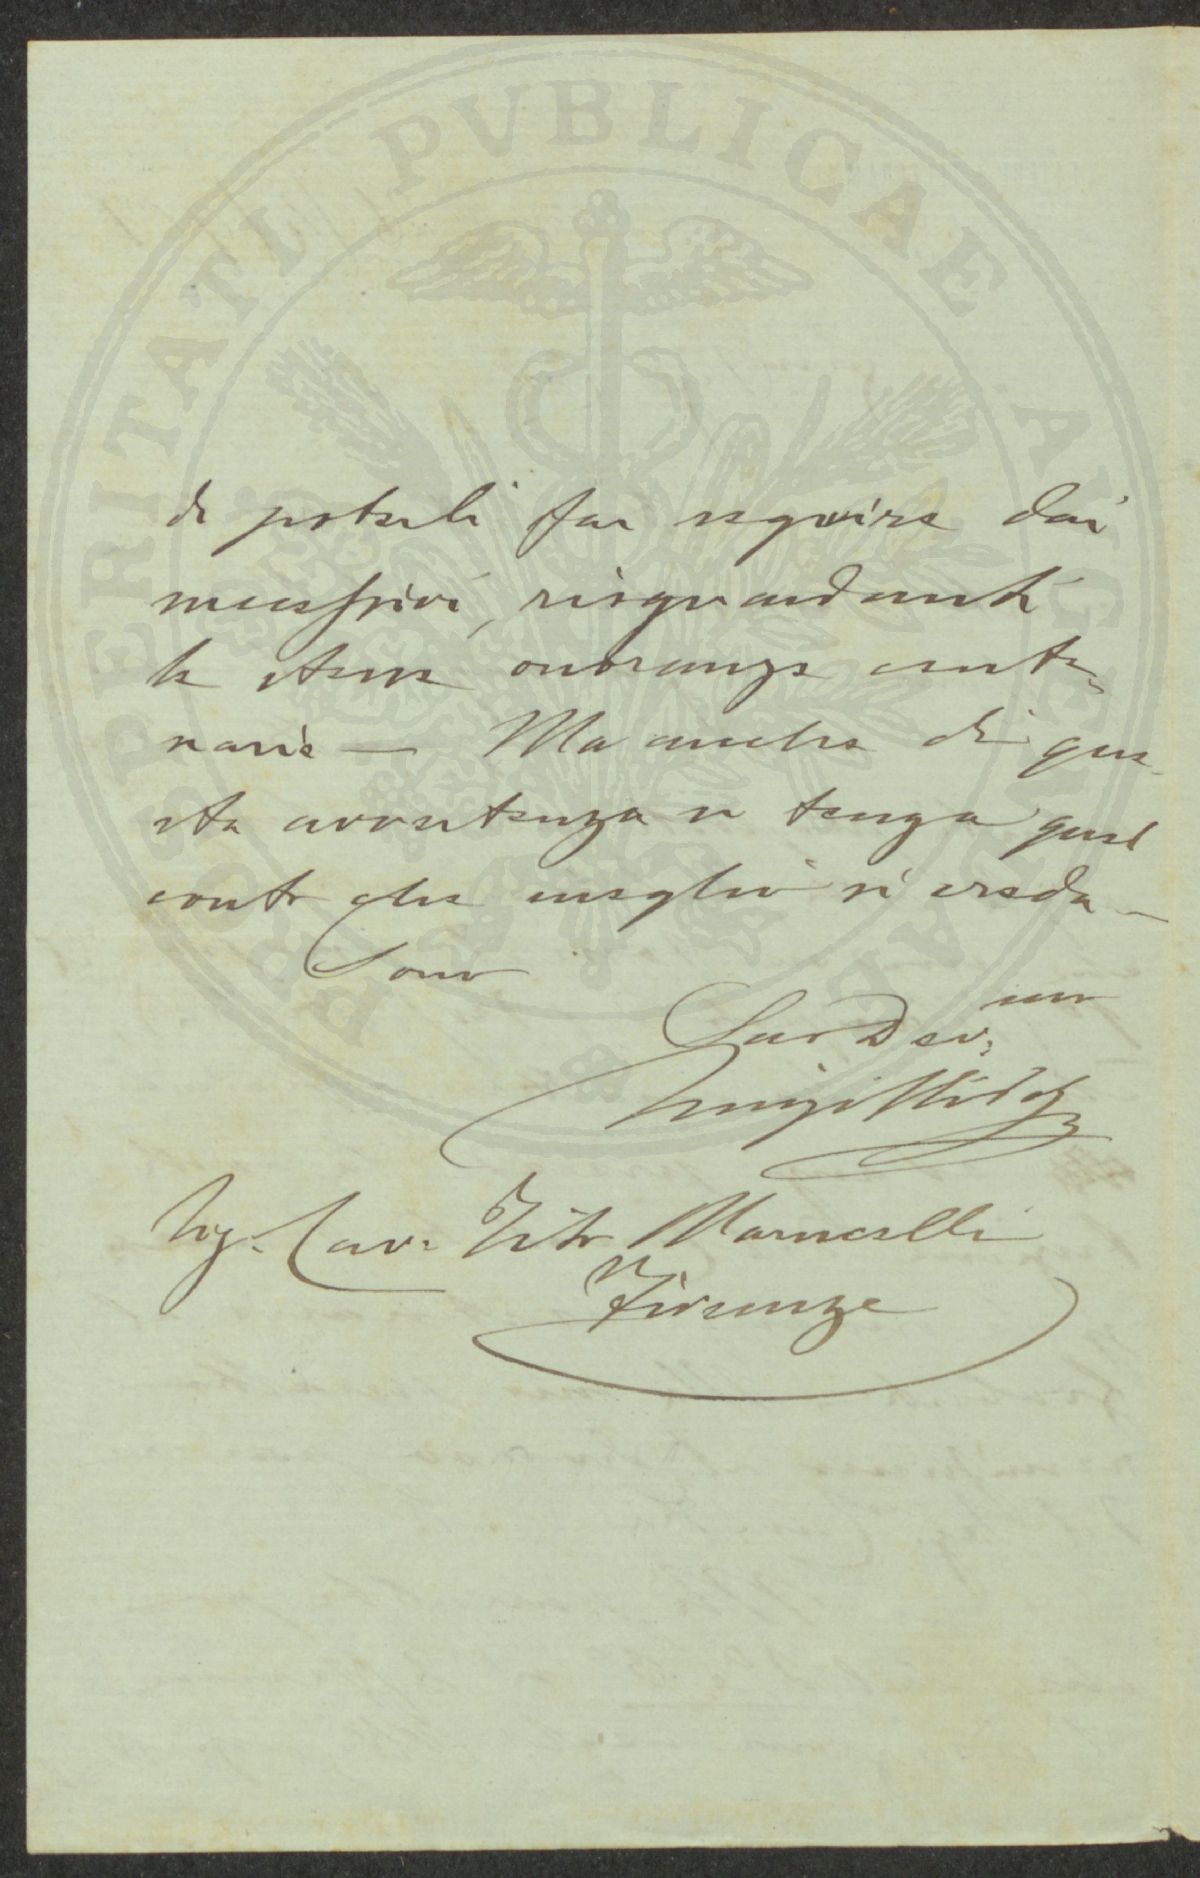 PROSPERITATI PVBLICAE AVGENDAE
di poterli far seguire dai
successivi, risguardanti
le stesse onoranze cente
narie — Ma anche di que
sta avvertenza si tenga quel
conto che meglio si creda —
Sono
Suo Dev.mo
Luigi
Sig. Cav. Tito Marucelli
Firenze